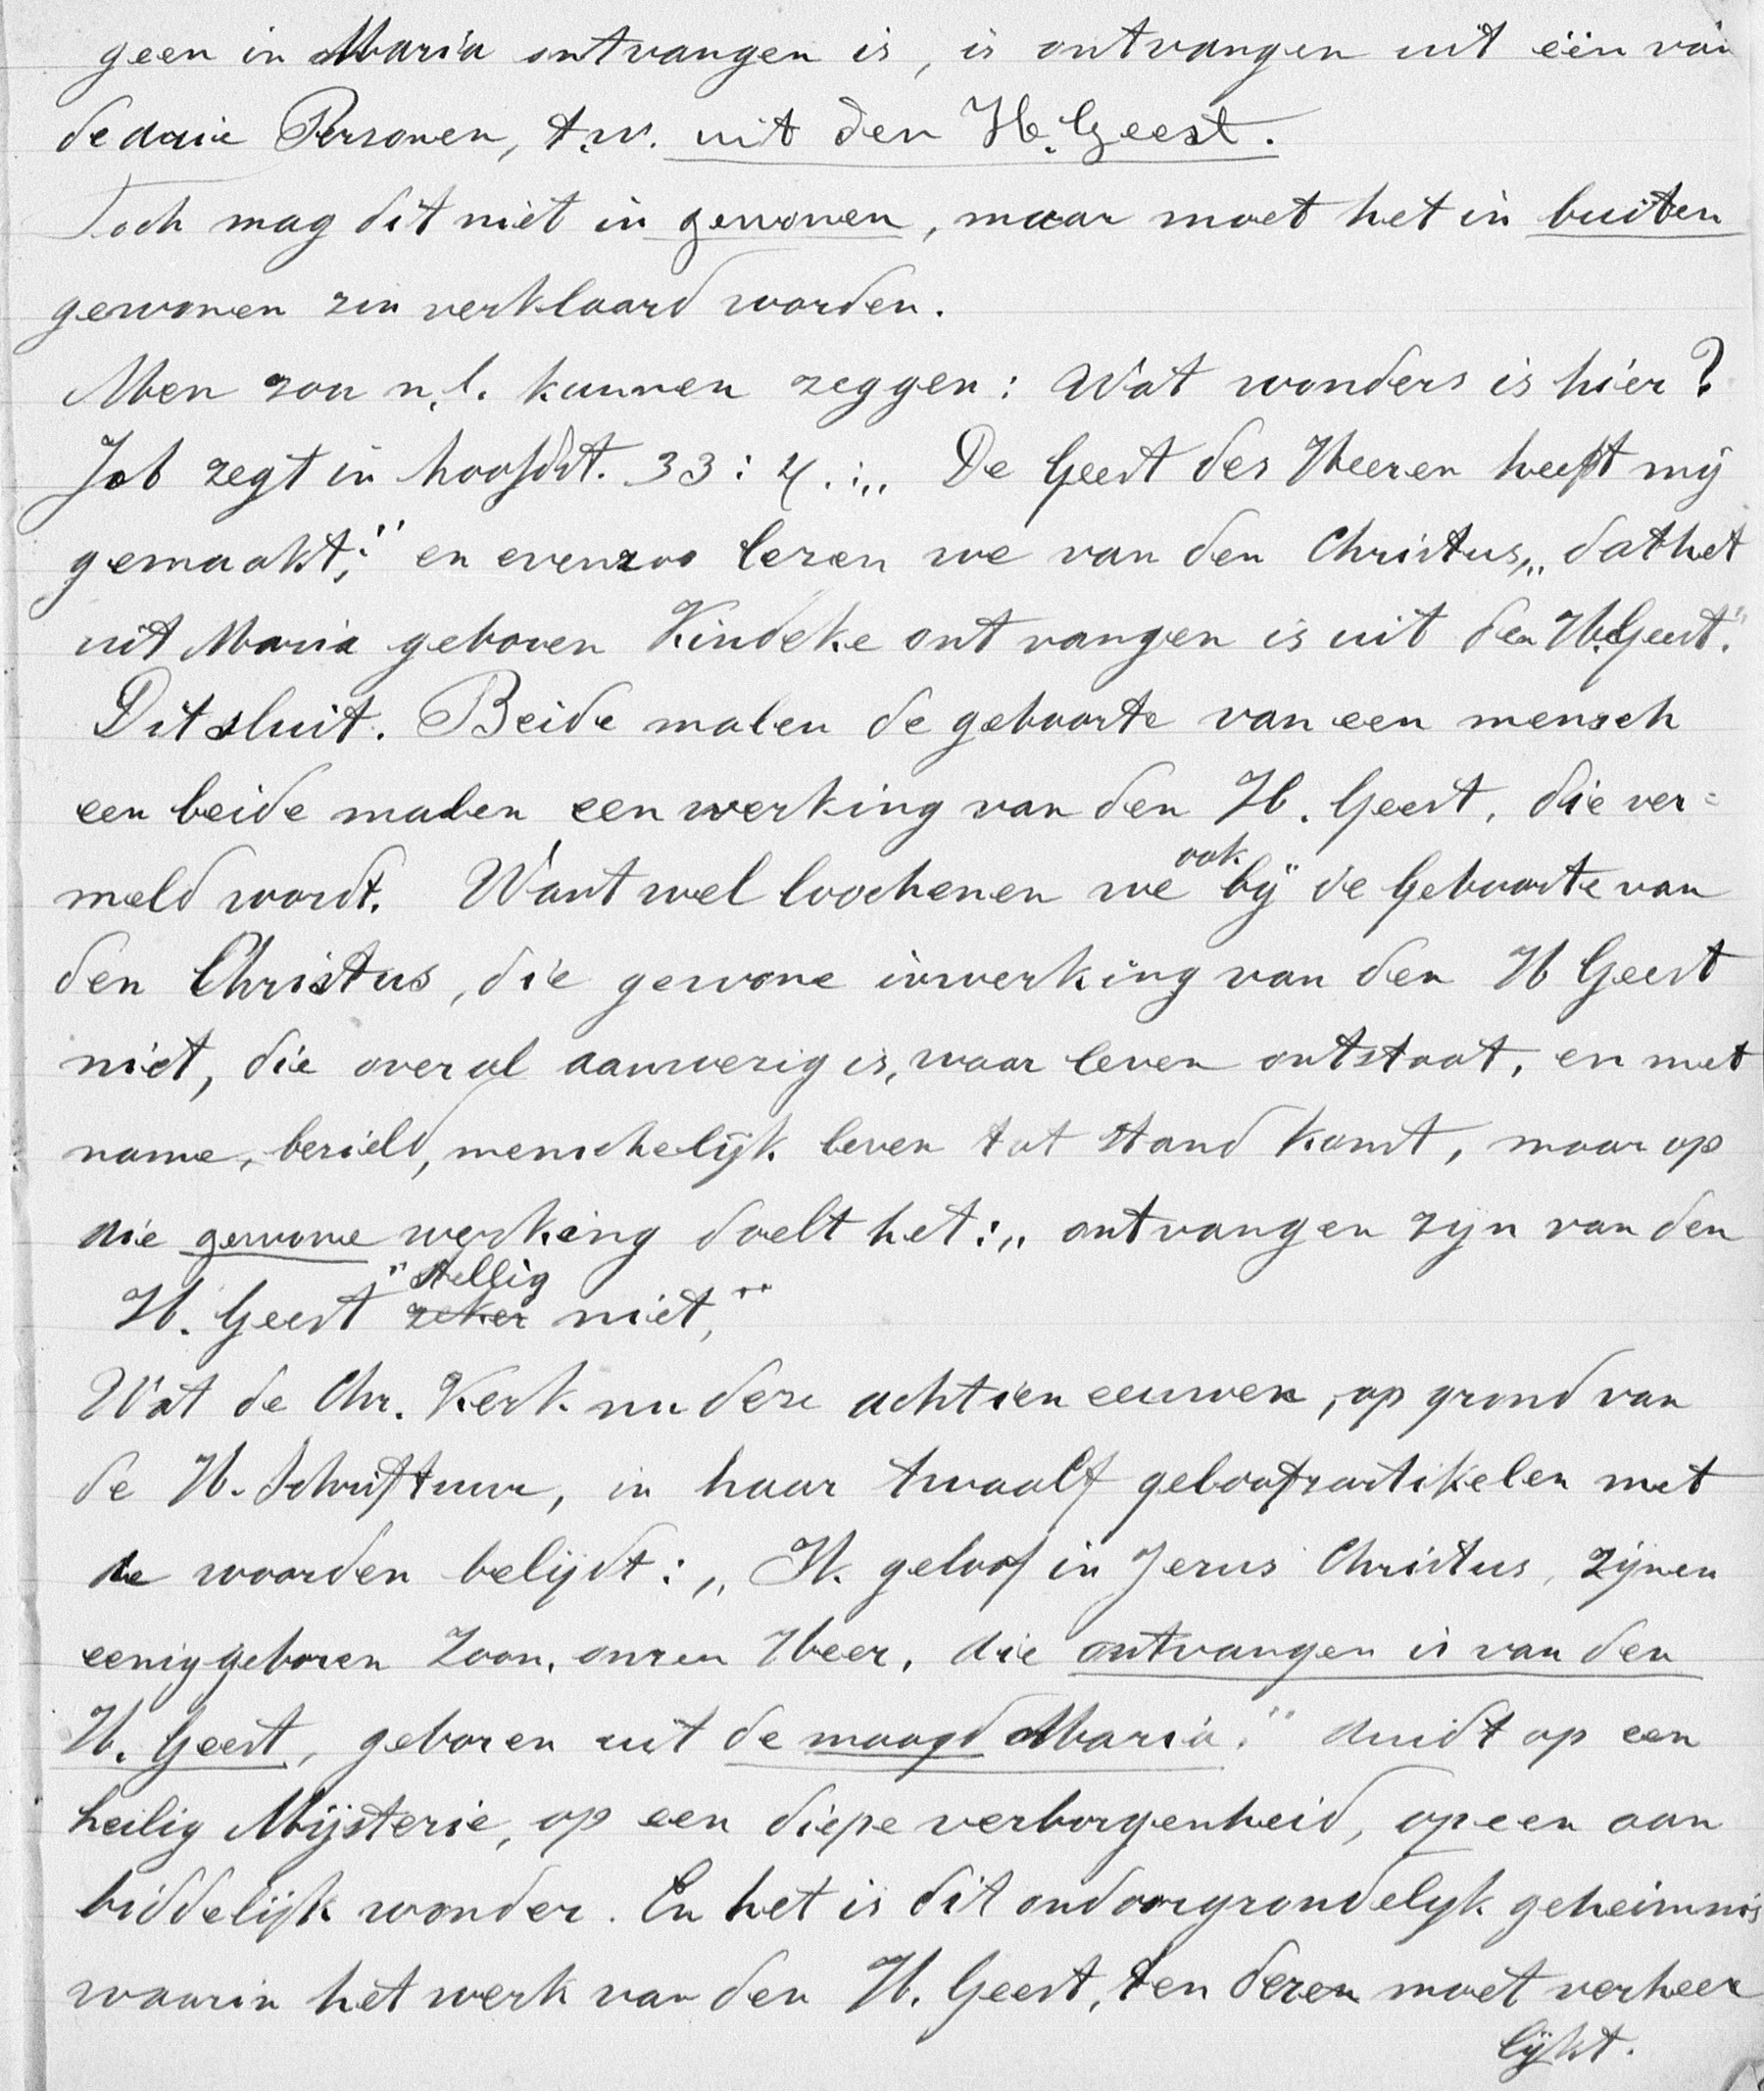 geen in Maria ontvangen is, is ontvangen uit één van
de drie Personen, t.w. uit den H. Geest.
Toch mag dit niet in gewonen, maar moet het in buiten
gewonen zin verklaard worden.
Men zou n.l. kunnen zeggen: Wat wonders is hier?
Job zegt in hoofdst. 33:4.:„ De Geest des Heeren heeft mij
gemaakt;" en evenzoo lezen we van den Christus,„ dat het
uit Maria geboren Kindeke ontvangen is uit den H. Geest."
Dit sluit. Beide malen de geboorte van een mensch
een beide malen een werking van den H. Geest, die ver=
meld wordt. Want wel loochenen we ook bij de Geboorte van
den Christus, die gewone inwerking van den H Geest
niet, die overal aanwezig is, waar leven ontstaat, en met
name, bezield, menschelijk leven tot stand komt, maar op
die gewone werking doelt het:„ ontvangen zijn van den
H. Geest" zeker stellig niet,"
Wat de Chr. Kerk nu deze achtien eeuwen, op grond van
de H. Schriftuur, in haar twaalf geloofsartikelen met
de woorden belijdt: „ Ik geloof in Jezus Christus, zijnen
eeniggeboren Zoon, onzen Heer, die ontvangen is van den
H. Geest, geboren uit de maagd Maria." duidt op een
heilig Mijsterie, op een diepe verborgenheid, op een aan
biddelijk wonder. En het is dit ondoorgrondelijk geheimnis
waarin het werk van den H. Geest, ten dezen moet verheer
lijkt.